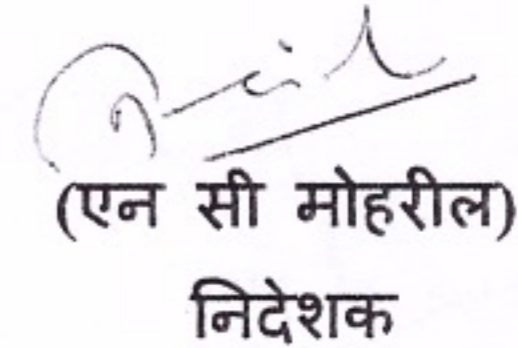 (एन सी मोहरील)
निदेशक